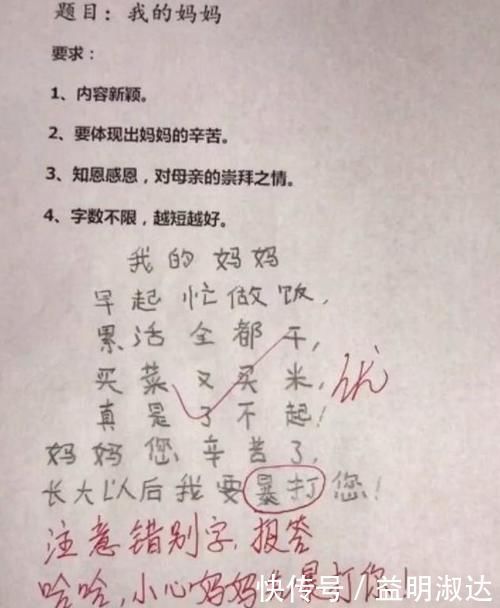 题目：我的妈妈
要求：
1、内容新颖。
2、要体现出妈妈的辛苦。
3、知恩感恩，对母亲的崇拜之情。
4、字数不限，越短越好。
我的妈妈
早起忙做饭，
累活全都干，
买菜又买米，
优
真是了不起！
妈妈您辛苦了，
长大以后我要暴打您！
注意错别字，报答
哈哈，小心妈妈暴打你！
快传号/益明淑达